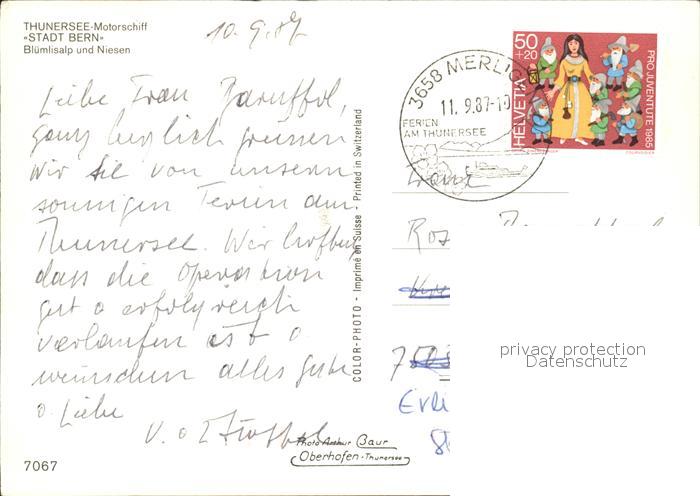 THUNERSEE-Motorschiff
«STADT BERN»
Blümlisalp und Niesen
10. 9. 87
Liebe Frau
ganz herzlich grüssen
wir Sie von unsern
sonnigen Ferien am
Thunersee. Wir hoffen,
dass die Operation
gut & erfolgreich
verlaufen ist &
wünschen alles Gute
& Liebe
V. &
Photo Arthur Baur
Oberhofen - Thunersee
7067
COLOR-PHOTO - Imprimé en Suisse - Printed in Switzerland
3658 MERLIG
11. 9.87-10
FERIEN
AM THUNERSEE
50
+20
HELVETIA
PRO JUVENTUTE 1985
COURVOISIER
privacy protection
Datenschutz